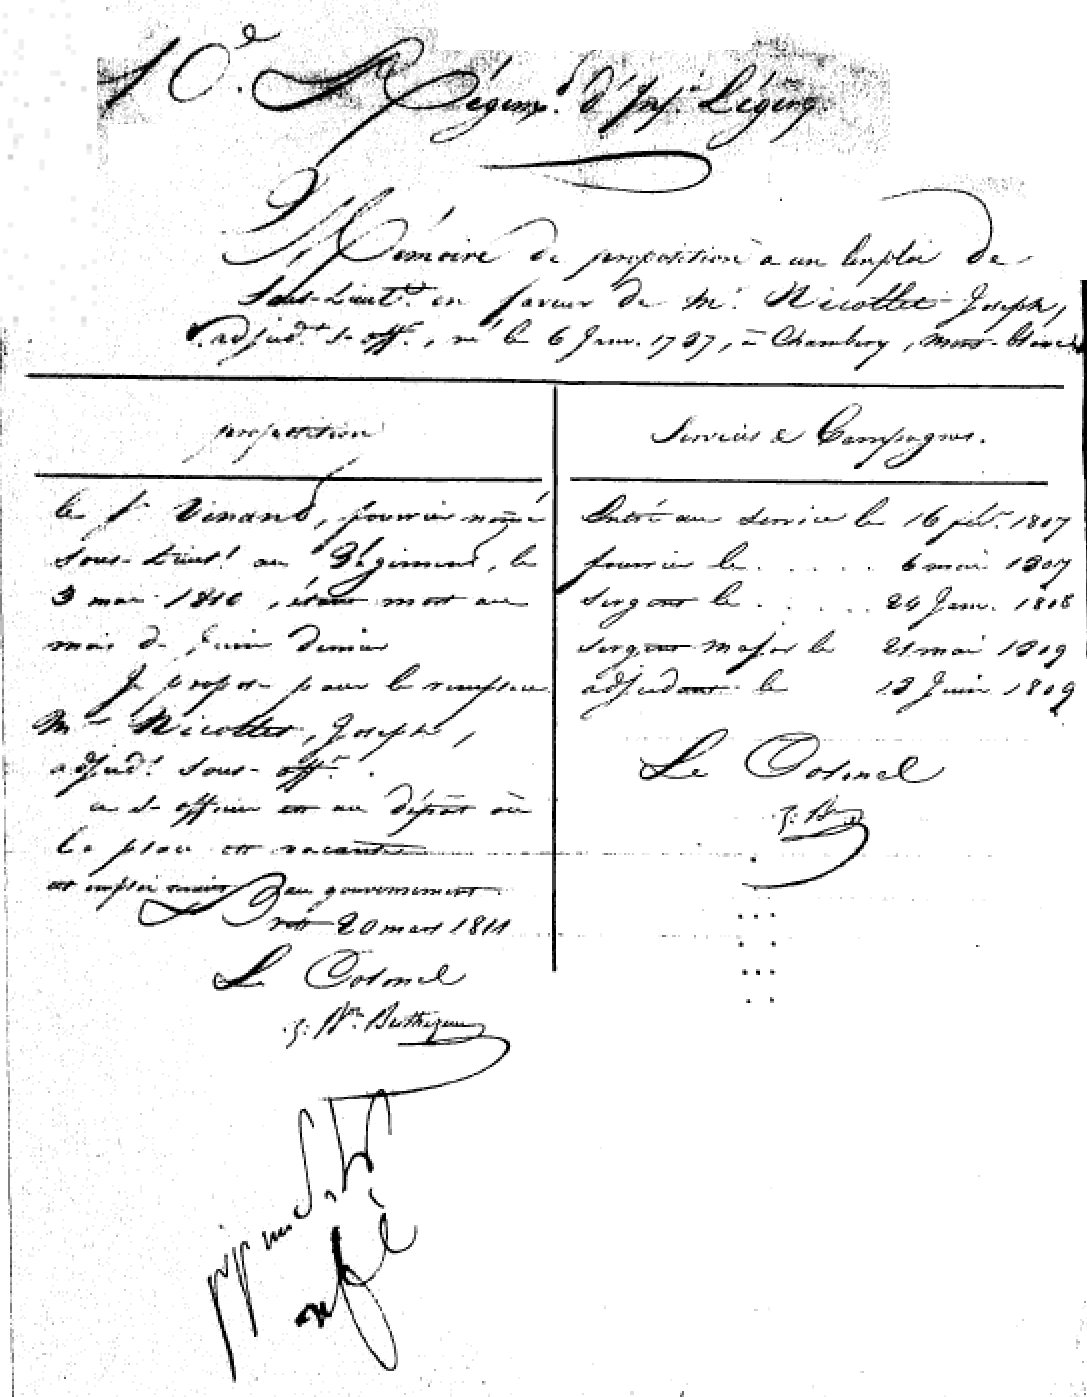 10e. Régimt. d'Inf. Légère.
Mémoire de proposition à un Emploi de
Sous-Lieutt. en faveur de Mr. Nicollet Joseph,
adjudt. s-offr., né le 6 Janv. 1787, à Chambery, Mont-blanc
proposition
le Sr. Vinand, fourrier nommé
sous-Lieutt. au Régiment, le
3 mai 1810, étant mort au
mois de Juin dernier
Je propose pour le remplacer
Mr. Nicollet, Joseph,
adjudt. sous-offr.
ce s-officier est au dépôt où
la place est vacante
cet emploi revient au gouvernement
20 mars 1811
Le Colonel
Bon. Berthezene
Services & Campagnes.
Entré au service le 16 févr. 1807
fourrier le ..... 6 mai 1807
sergent le ..... 24 Janv. 1808
sergent major le 21 mai 1809
adjudant le 12 Juin 1809
Le Colonel